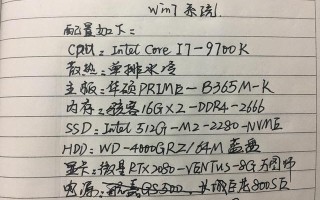 Win7 系统
配置如下：
CPU：Intel Core I7-9700K
散热：单排水冷
主版：华硕PRIME-B365M-K
内存：骇客16GX2-DDR4-2666
SSD：Intel 512G-M2-2280-NVME
HDD：WD-4000GRZ/64M 蓝盘
显卡：微星RTX2080-VENTUS-8G 万图师
电源： GS500，长城巨龙800S巨